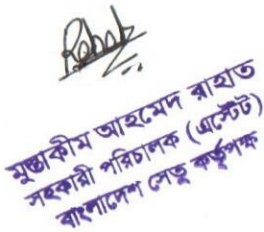 মুস্তাকীম আহমেদ রাহাত
সহকারী পরিচালক (এস্টেট)
বাংলাদেশ সেতু কর্তৃপক্ষ